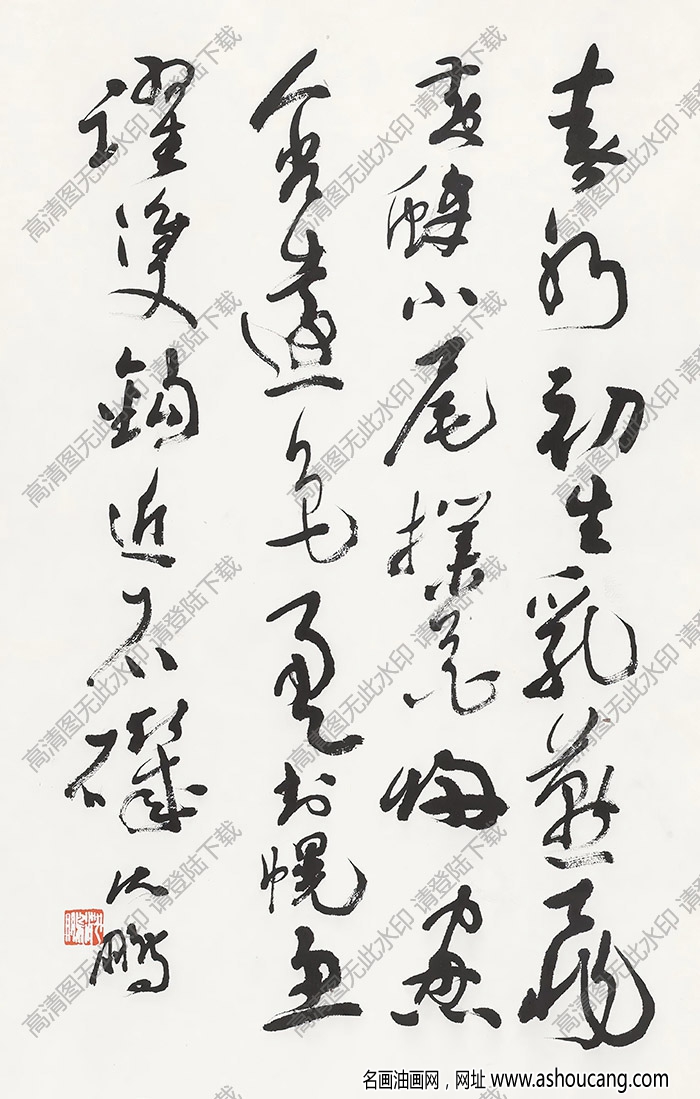 春水初生乳燕飛
黄蜂小尾撲花歸窗
含遠色通書幌魚
擁香鉤近石磯 沈鹏
高清图无此水印 请登陆下载
名画油画网，网址 www.ashoucang.com